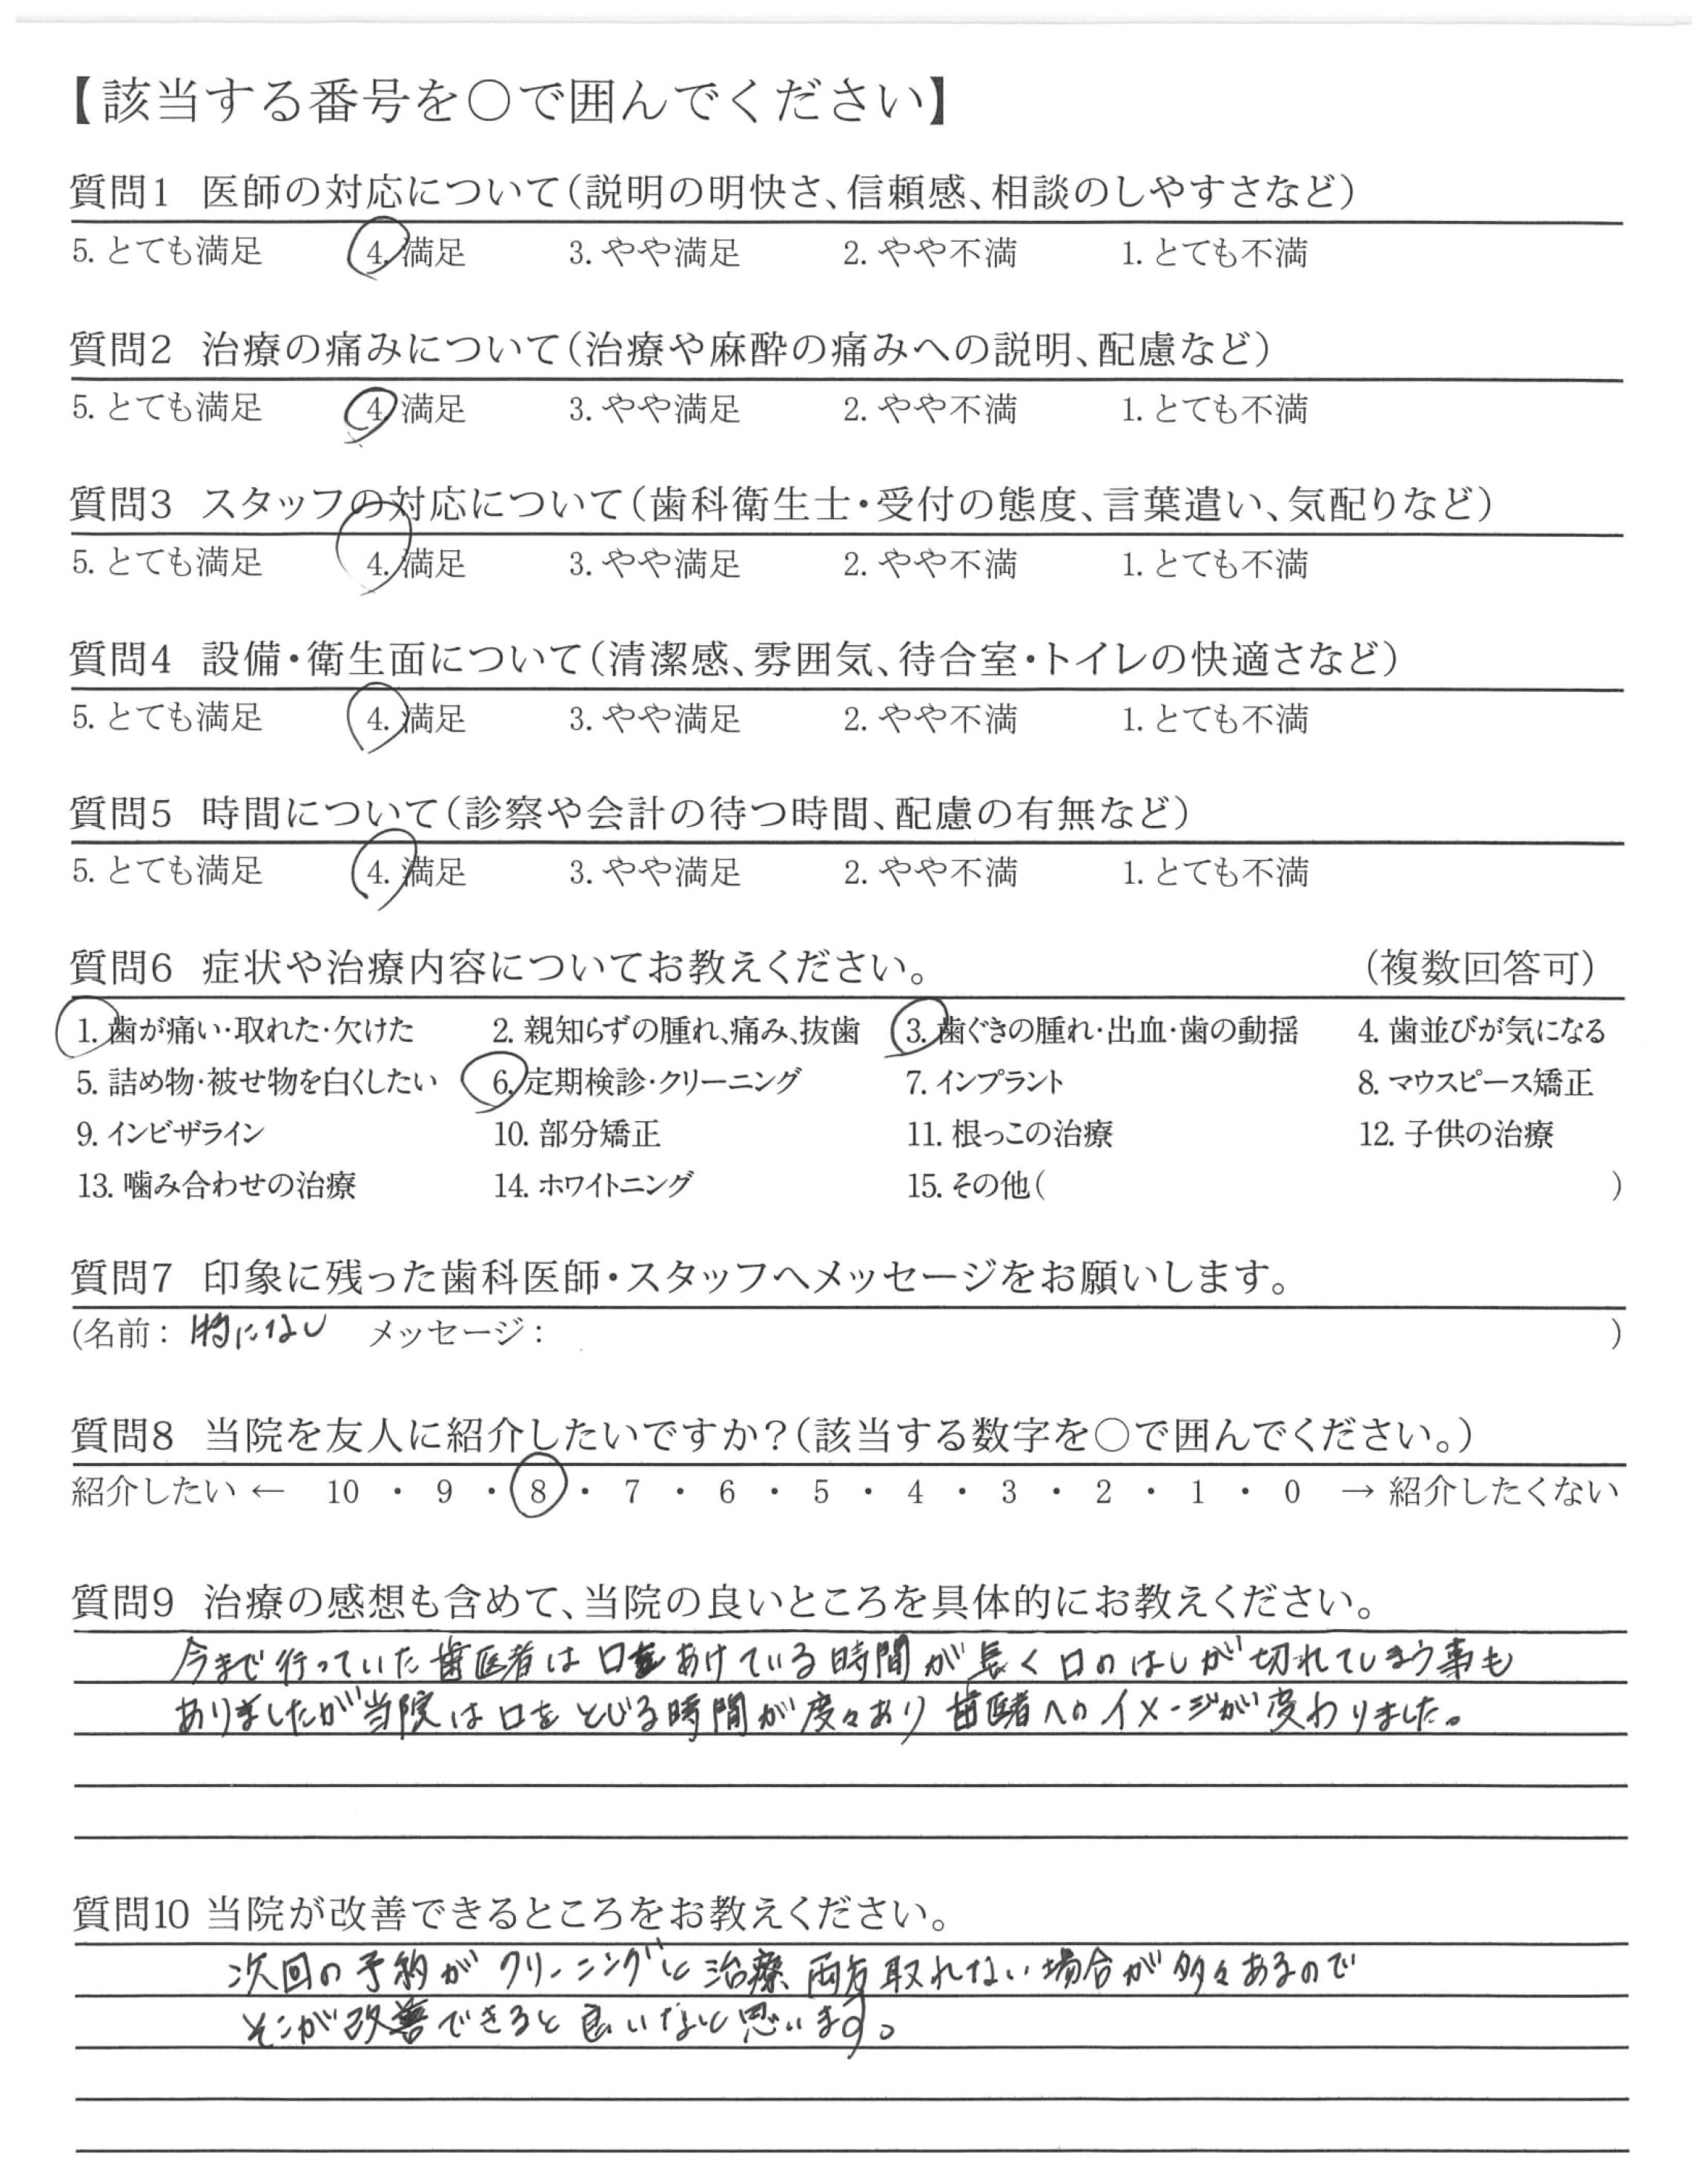 【該当する番号を〇で囲んでください】
質問1 医師の対応について(説明の明快さ、信頼感、相談のしやすさなど)
5. とても満足 4. 満足 3. やや満足 2. やや不満 1. とても不満
質問2 治療の痛みについて(治療や麻酔の痛みへの説明、配慮など)
5. とても満足 4. 満足 3. やや満足 2. やや不満 1. とても不満
質問3 スタッフの対応について(歯科衛生士・受付の態度、言葉遣い、気配りなど)
5. とても満足 4. 満足 3. やや満足 2. やや不満 1. とても不満
質問4 設備・衛生面について(清潔感、雰囲気、待合室・トイレの快適さなど)
5. とても満足 4. 満足 3. やや満足 2. やや不満 1. とても不満
質問5 時間について(診察や会計の待つ時間、配慮の有無など)
5. とても満足 4. 満足 3. やや満足 2. やや不満 1. とても不満
質問6 症状や治療内容についてお教えください。 (複数回答可)
1. 歯が痛い・取れた・欠けた 2. 親知らずの腫れ、痛み、抜歯 3. 歯ぐきの腫れ・出血・歯の動揺 4. 歯並びが気になる
5. 詰め物・被せ物を白くしたい 6. 定期検診・クリーニング 7. インプラント 8. マウスピース矯正
9. インビザライン 10. 部分矯正 11. 根っこの治療 12. 子供の治療
13. 噛み合わせの治療 14. ホワイトニング 15. その他( )
質問7 印象に残った歯科医師・スタッフへメッセージをお願いします。
(名前: 特になし メッセージ: )
質問8 当院を友人に紹介したいですか?(該当する数字を〇で囲んでください。)
紹介したい ← 10 ・ 9 ・ 8 ・ 7 ・ 6 ・ 5 ・ 4 ・ 3 ・ 2 ・ 1 ・ 0 → 紹介したくない
質問9 治療の感想も含めて、当院の良いところを具体的にお教えください。
今まで行っていた歯医者は口をあけている時間が長く口のはしが切れてしまう事も
ありましたが当院は口をとじる時間が度々あり歯医者へのイメージが変わりました。
質問10 当院が改善できるところをお教えください。
次回の予約がクリーニングと治療両方取れない場合が多々あるので
そこが改善できると良いなと思います。